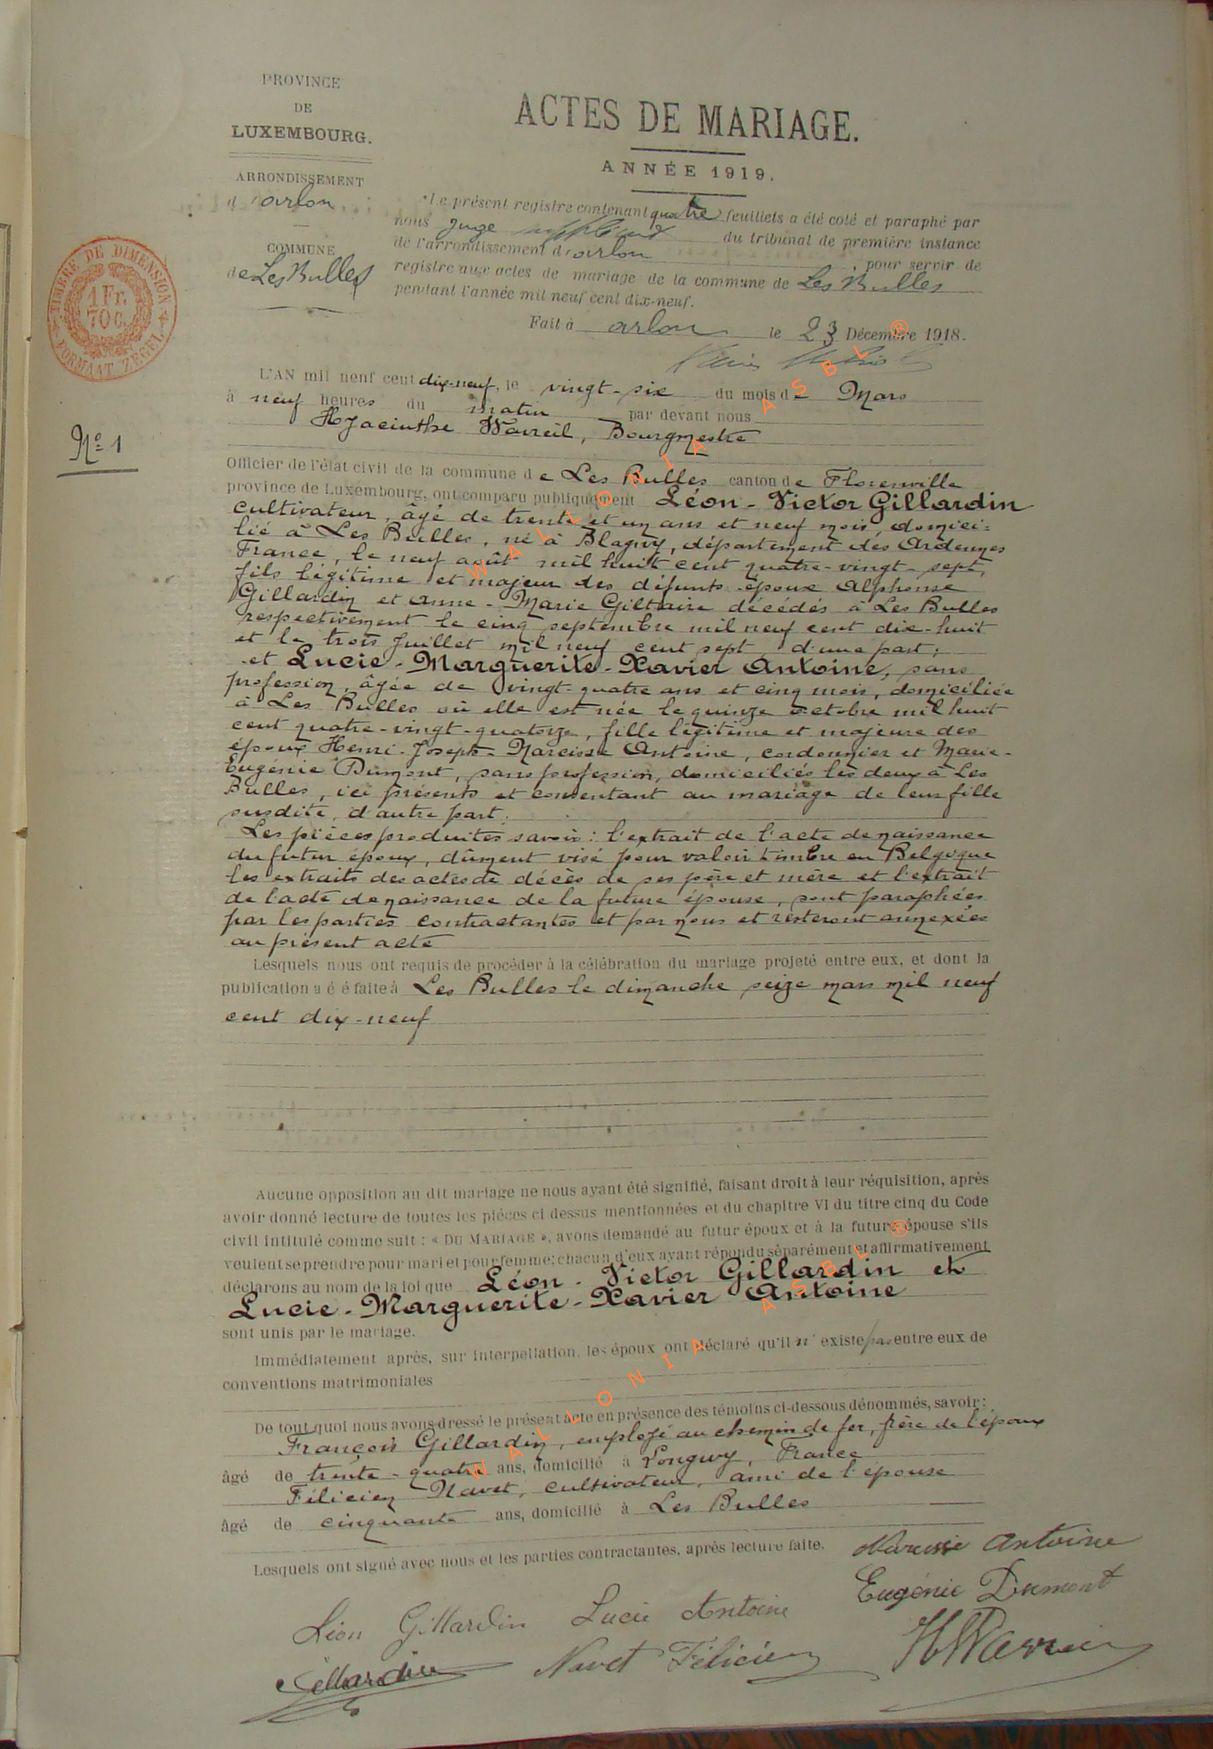 PROVINCE
DE
LUXEMBOURG.
ARRONDISSEMENT
d'arlon
COMMUNE
de Les Bulles
TIMBRE DE DIMENSION
1 Fr.
70 C.
FORMAAT ZEGEL
ACTES DE MARIAGE.
ANNÉE 1919.
Le présent registre contenant quatre feuillets a été coté et paraphé par
nous juge suppléant du tribunal de première instance
de l'arrondissement d'arlon, pour servir de
registre aux actes de mariage de la commune de Les Bulles
pendant l'année mil neuf cent dix-neuf.
Fait à arlon le 23 Décembre 1918.
Nº 1
L'AN mil neuf cent dix-neuf, le vingt-six du mois de Mars
à neuf heures du matin par devant nous
HJacinthe Wavreil, Bourgmestre
Officier de l'état civil de la commune de Les Bulles canton de Florenville
province de Luxembourg, ont comparu publiquement Léon-Victor Gillardin
cultivateur, âgé de trente et un ans et neuf mois, domici=
lié à Les Bulles, né à Blagny, département des Ardennes
France, le neuf août mil huit cent quatre-vingt-sept,
fils légitime et majeur des défunts époux Alphonse
Gillardin et Anne-Marie Giltaire décédés à Les Bulles
respectivement le cinq septembre mil neuf cent dix-huit
et le trois Juillet mil neuf cent sept, d'une part;
et Lucie-Marguerite-Xavier Antoine, sans
profession, âgée de vingt-quatre ans et cinq mois, domiciliée
à Les Bulles où elle est née le quinze octobre mil huit
cent quatre-vingt-quatorze, fille légitime et majeure des
époux Henri-Joseph-Narcisse Antoine, cordonnier et Marie-
Eugénie Dumont, sans profession, domiciliés les deux à Les
Bulles, ici présents et consentant au mariage de leur fille
susdite, d'autre part.
Les pièces produites savoir: l'extrait de l'acte de naissance
du futur époux, dûment visé pour valoir timbre en Belgique
les extraits des actes de décès de ses père et mère et l'extrait
de l'acte de naissance de la future épouse, sont paraphées
par les parties contractantes et par nous et resteront annexées
au présent acte
Lesquels nous ont requis de procéder à la célébration du mariage projeté entre eux, et dont la
publication a é é faite à Les Bulles le dimanche seize mars mil neuf
cent dix-neuf
Aucune opposition au dit mariage ne nous ayant été signifié, faisant droit à leur réquisition, après
avoir donné lecture de toutes les pièces ci dessus mentionnées et du chapitre VI du titre cinq du Code
civil intitulé comme suit : « DU MARIAGE », avons demandé au futur époux et à la future épouse s'ils
veulent se prendre pour mari et pour femme: chacun d'eux ayant répondu séparément et affirmativement
déclarons au nom de la loi que Léon-Victor Gillardin et
Lucie-Marguerite-Xavier Antoine
sont unis par le mariage.
Immédiatement après, sur interpellation, les époux ont déclaré qu'il n'existe pas entre eux de
conventions matrimoniales
De tout quoi nous avons dressé le présent acte en présence des témoins ci-dessous dénommés, savoir:
François Gillardin, employé au chemin de fer, frère de l'époux
âgé de trente-quatre ans, domicilié à Longwy, France
Félicien Navet, cultivateur, ami de l'épouse
âgé de cinquante ans, domicilié à Les Bulles
Lesquels ont signé avec nous et les parties contractantes, après lecture faite.
Narcisse Antoine
Eugénie Dumont
Léon Gillardin Lucie Antoine
Gillardin Navet Félicien HWavreil
WALLONIA ASBL ®
WALLONIA ASBL ®